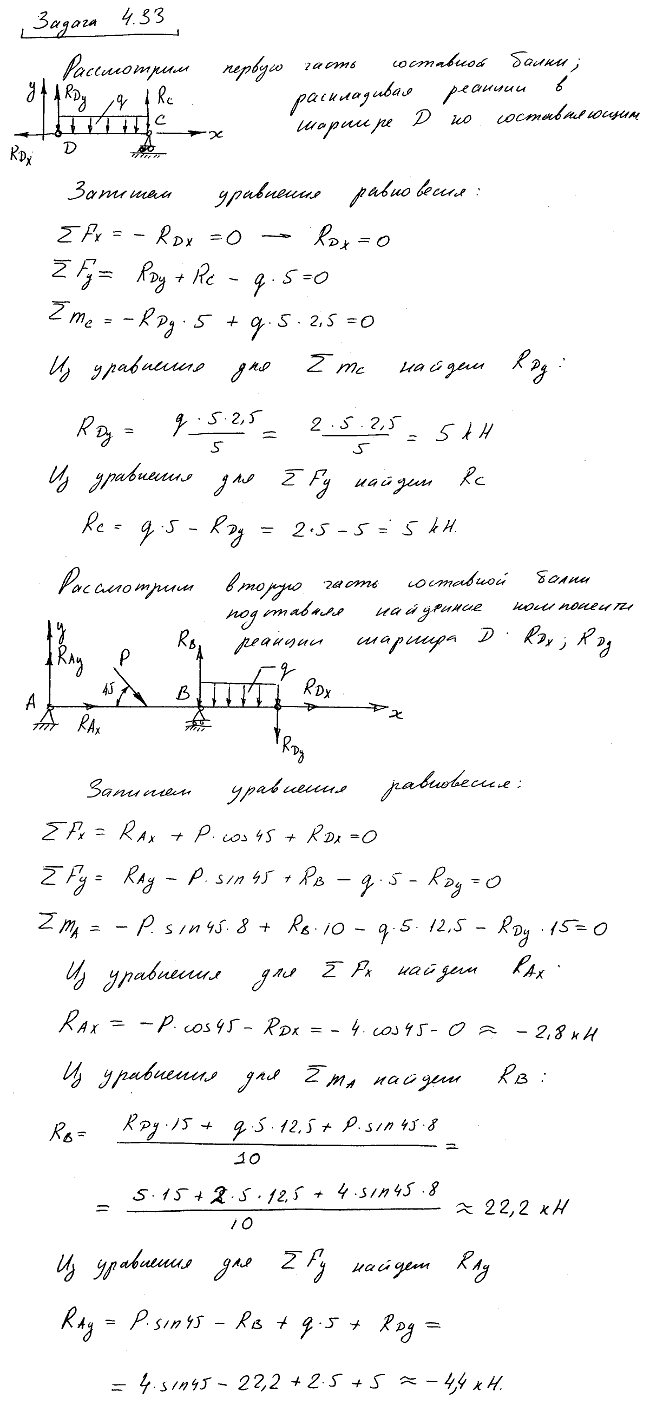 Задача 4.33
Рассмотрим первую часть составной балки,
раскладывая реакции в
шарнире D на составляющие
y RDy q RC
RDx D C x
Запишем уравнения равновесия:
ΣFx = - RDx = 0 → RDx = 0
ΣFy = RDy + RC - q·5 = 0
Σmc = -RDy·5 + q·5·2,5 = 0
Из уравнения для Σmc найдем RDy:
RDy = q·5·2,5/5 = 2·5·2,5/5 = 5 кН
Из уравнения для ΣFy найдем RC
RC = q·5 - RDy = 2·5 - 5 = 5 кН.
Рассмотрим вторую часть составной балки
подставляя найденные компоненты
реакции шарнира D RDx; RDy
y RAy P RB q RDx
A 45 B x
RAx RDy
Запишем уравнения равновесия:
ΣFx = RAx + P·cos45 + RDx = 0
ΣFy = RAy - P·sin45 + RB - q·5 - RDy = 0
ΣmA = - P·sin45·8 + RB·10 - q·5·12,5 - RDy·15 = 0
Из уравнения для ΣFx найдем RAx
RAx = -P·cos45 - RDx = - 4·cos45 - 0 ≈ - 2,8 кН
Из уравнения для ΣmA найдем RB:
RB = RDy·15 + q·5·12,5 + P·sin45·8/10 =
= 5·15 + 2·5·12,5 + 4·sin45·8/10 ≈ 22,2 кН
Из уравнения для ΣFy найдем RAy
RAy = P·sin45 - RB + q·5 + RDy =
= 4·sin45 - 22,2 + 2·5 + 5 ≈ -4,4 кН.